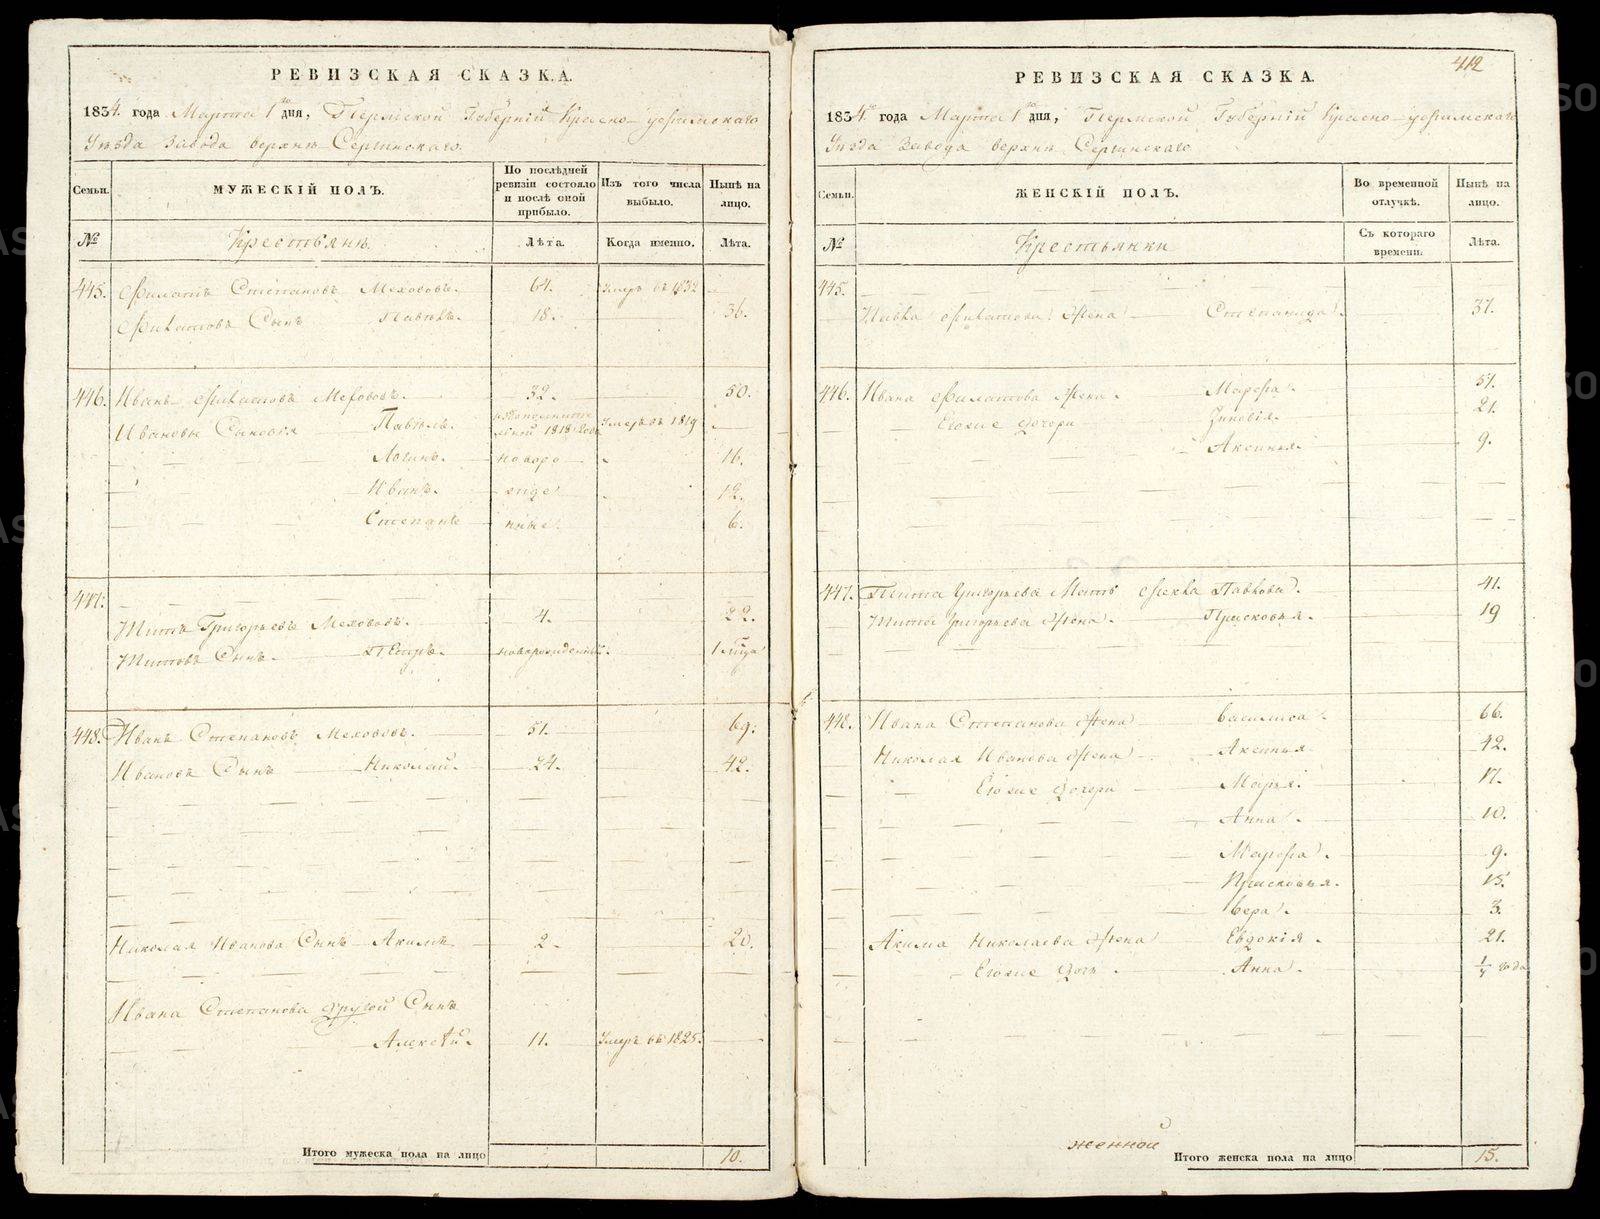 РЕВИЗСКАЯ СКАЗКА.
1834. года Марта 1го дня, Пермской Губерніи Красно-уфимскаго
Уѣзда Завода верхнѣ-Сергинскаго.
Семьи.
МУЖЕСКІЙ ПОЛЪ.
По послѣдней ревизіи состояло и послѣ оной прибыло.
Изъ того числа выбыло.
Нынѣ на лицо.
№
Крестьянѣ
Лѣта.
Когда именно.
Лѣта.
445. Филатъ Степановъ Мехововъ. 64. Умеръ въ 1832
Филатовъ Сынъ Павелъ. 18. 36.
446. Иванъ Филатовъ Мехововъ. 32. 50.
Ивановы Сыновья Павелъ. 1818 года Умеръ въ 1819
Логинъ. новоро 16.
Иванъ. жде 12.
Степанъ нные. 6.
447.
Титъ Григорьевъ Мехововъ. 4. 22.
Титовъ Сынъ. Петръ. новорожденный. 1
448. Иванъ Степановъ Мехововъ. 51. 69.
Ивановъ Сынъ Николай. 24. 42.
Николая Иванова Сынъ Акимъ 2. 20.
Ивана Степанова другой Сынъ
Алексѣй. 11. Умеръ въ 1825.
Итого мужеска пола на лицо 10.
412
РЕВИЗСКАЯ СКАЗКА.
1834го года Марта 1го дня, Пермской Губерніи Красно-уфимскаго
Уѣзда Завода верхнѣ Сергинскаго
Семьи.
ЖЕНСКІЙ ПОЛЪ.
Во временной отлучкѣ.
Нынѣ на лицо.
№
Крестьянки
Съ котораго времени.
Лѣта.
445.
Павла Филатова Жена Степанида. 37.
446. Ивана Филатова Жена. Марфа. 51.
Егоже дочери Зиновія. 21.
Аксинья. 9.
447. Тита Григорьева Мать Фекла Павлова. 41.
Тита Григорьева Жена. Прасковья. 19
448. Ивана Степанова Жена Василиса. 66.
Николая Иванова Жена Аксинья 42.
Егоже дочери Марья. 17.
Анна. 10.
Марфа. 9.
Прасковья. 15.
Вера. 3.
Акима Николаева Жена Евдокія. 21.
Егоже дочь. Анна. года
женной
Итого женска пола на лицо 15.